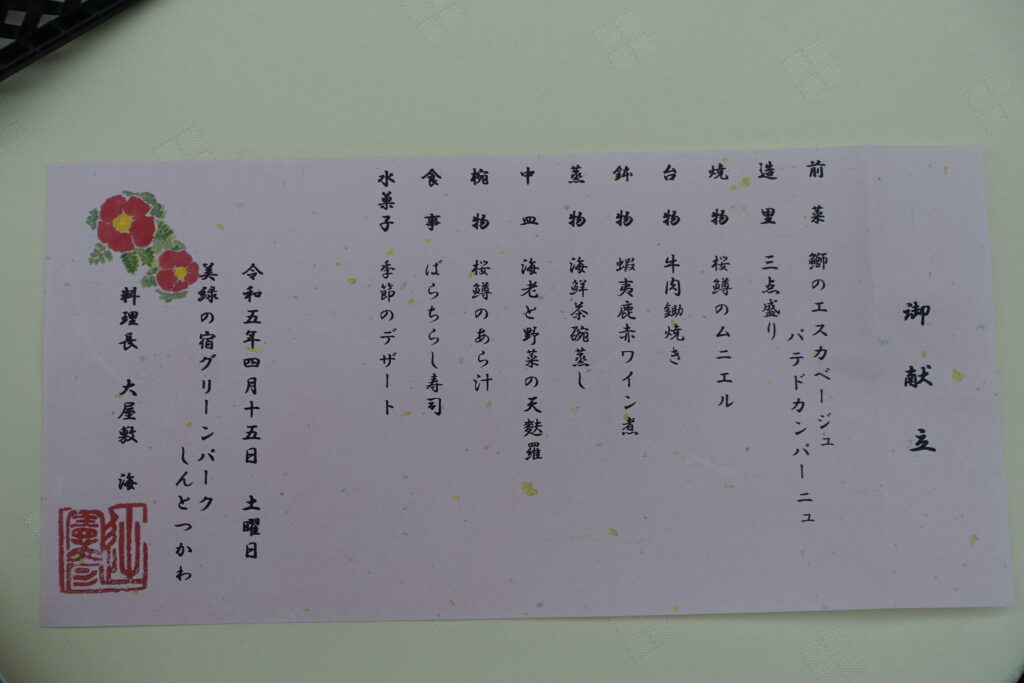 御献立
前菜 鰤のエスカベージュ
パテドカンパーニュ
造里 三点盛り
焼物 桜鱒のムニエル
台物 牛肉鋤焼き
鉢物 蝦夷鹿赤ワイン煮
蒸物 海鮮茶碗蒸し
中皿 海老と野菜の天麩羅
椀物 桜鱒のあら汁
食事 ばらちらし寿司
水菓子 季節のデザート
令和五年四月十五日 土曜日
美緑の宿グリーンパーク
しんとつかわ
料理長 大屋敷 海